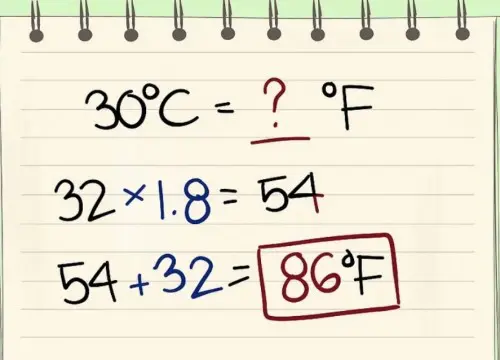 30°C = ? °F
32 × 1.8 = 54
54 + 32 = 86°F